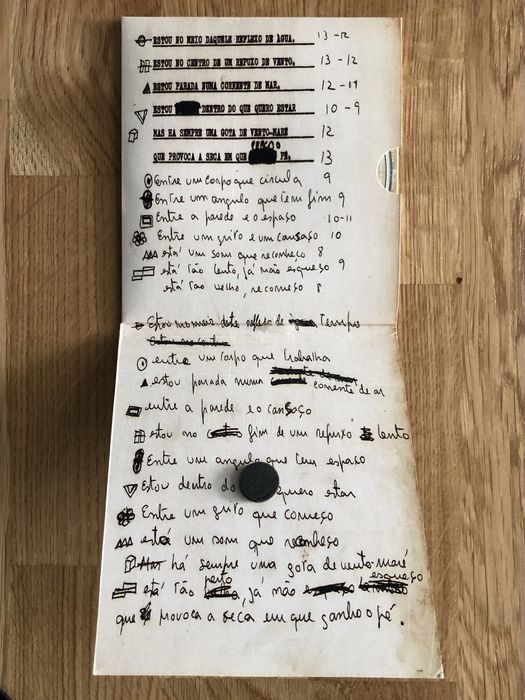 ESTOU NO MEIO DAQUELE REFLEXO DE ÁGUA. 13-12
ESTOU NO CENTRO DE UM REPUXO DE VENTO. 13-12
ESTOU PARADA NUMA CORRENTE DE MAR. 12-11
ESTOU DENTRO DO QUE QUERO ESTAR 10-9
MAS HA SEMPRE UMA GOTA DE VENTO-MARÉ 12
QUE PROVOCA A SECA EM QUE PÉ. 13
Entre um corpo que circula 9
Entre um angulo que tem fim 9
Entre a parede e o espaço 10-11
Entre um grito e um cansaço 10
está um som que reconheço 8
está tão lento, já não esqueço 9
está tão velho, recomeço 8
Estou no meio deste reflexo de tempo
Estou no centro
entre um corpo que trabalha
estou parada numa corrente de ar
entre a parede e o cansaço
estou no fim de um repuxo lento
Entre um angulo que tem espaço
Estou dentro do quero estar
Entre um grito que começo
está um som que reconheço
há sempre uma gota de vento-maré
está tão perto, já não esqueço
que provoca a seca em que ganho o pé.